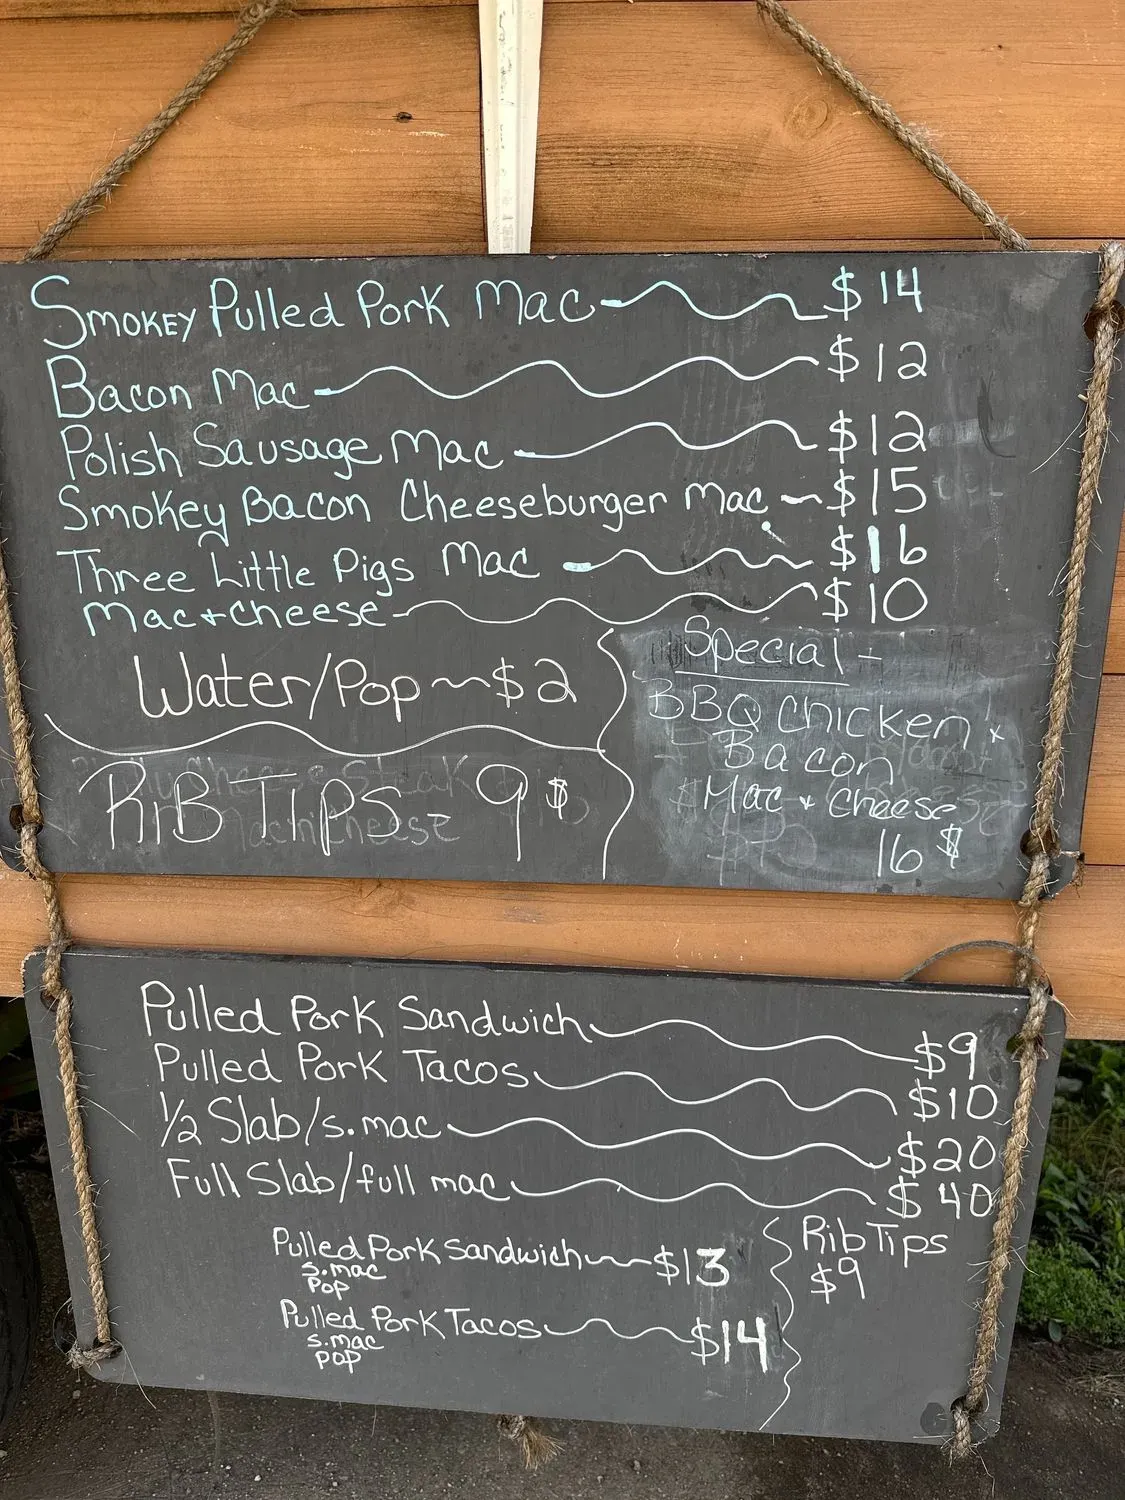 Smokey Pulled Pork Mac $14
Bacon Mac $12
Polish Sausage Mac $12
Smokey Bacon Cheeseburger Mac $15
Three Little Pigs Mac $16
Mac + cheese $10
Water/Pop $2
Rib Tips - 9$
Special -
BBQ Chicken
Bacon
Mac + cheese
16$
Pulled Pork Sandwich $9
Pulled Pork Tacos $10
1/2 Slab/s.mac $20
Full Slab/full mac $40
Pulled Pork Sandwich $13
s.mac
Pop
Pulled Pork Tacos $14
s.mac
pop
Rib Tips
$9